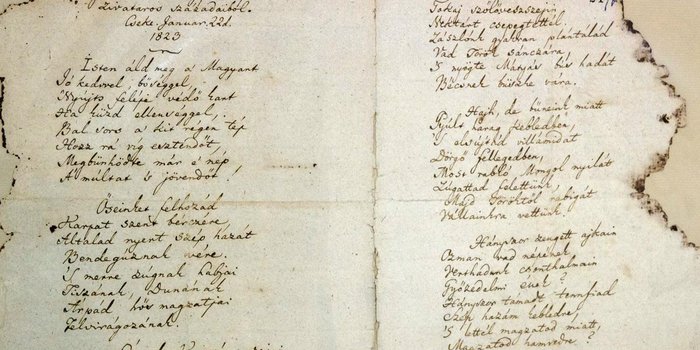 Zivataros századaiból.
Cseke. Januar. 22d.
1823
Isten áldd meg a' Magyart
Jó kedvvel, bőséggel,
Nyújts feléje védő kart
Ha küzd ellenséggel,
Bal sors a' kit régen tép
Hozz rá víg esztendőt,
Megbűnhődte már e' nép
A' múltat 's jövendőt!
Őseinket felhozád
Kárpát szent bérczére,
Általad nyert szép hazát
Bendegúznak vére.
'S merre zúgnak habjai
Tiszának, Dunának
Árpád hős magzatjai
Felvirágozának.
Tokaj szőlővesszejin
Nektárt csepegtettél.
Zászlónk gyakran plántálád
Vad Török sánczára,
'S nyögte Mátyás bús hadát
Bécsnek büszke vára.
Hajh, de bűneink miatt
Gyúlt harag kebledben,
'S elsújtád villámidat
Dörgő fellegedben,
Most rabló Mongol nyilát
Zúgattad felettünk,
Majd Töröktől rabigát
Vállainkra vettünk.
Hányszor zengett ajkain
Ozman vad népének
Verthadunk csonthalmain
Győzedelmi ének?
Hányszor támadt tennfiad
Szép hazám kebledre,
'S lettél magzatod miatt,
Magzatod hamvvedre?